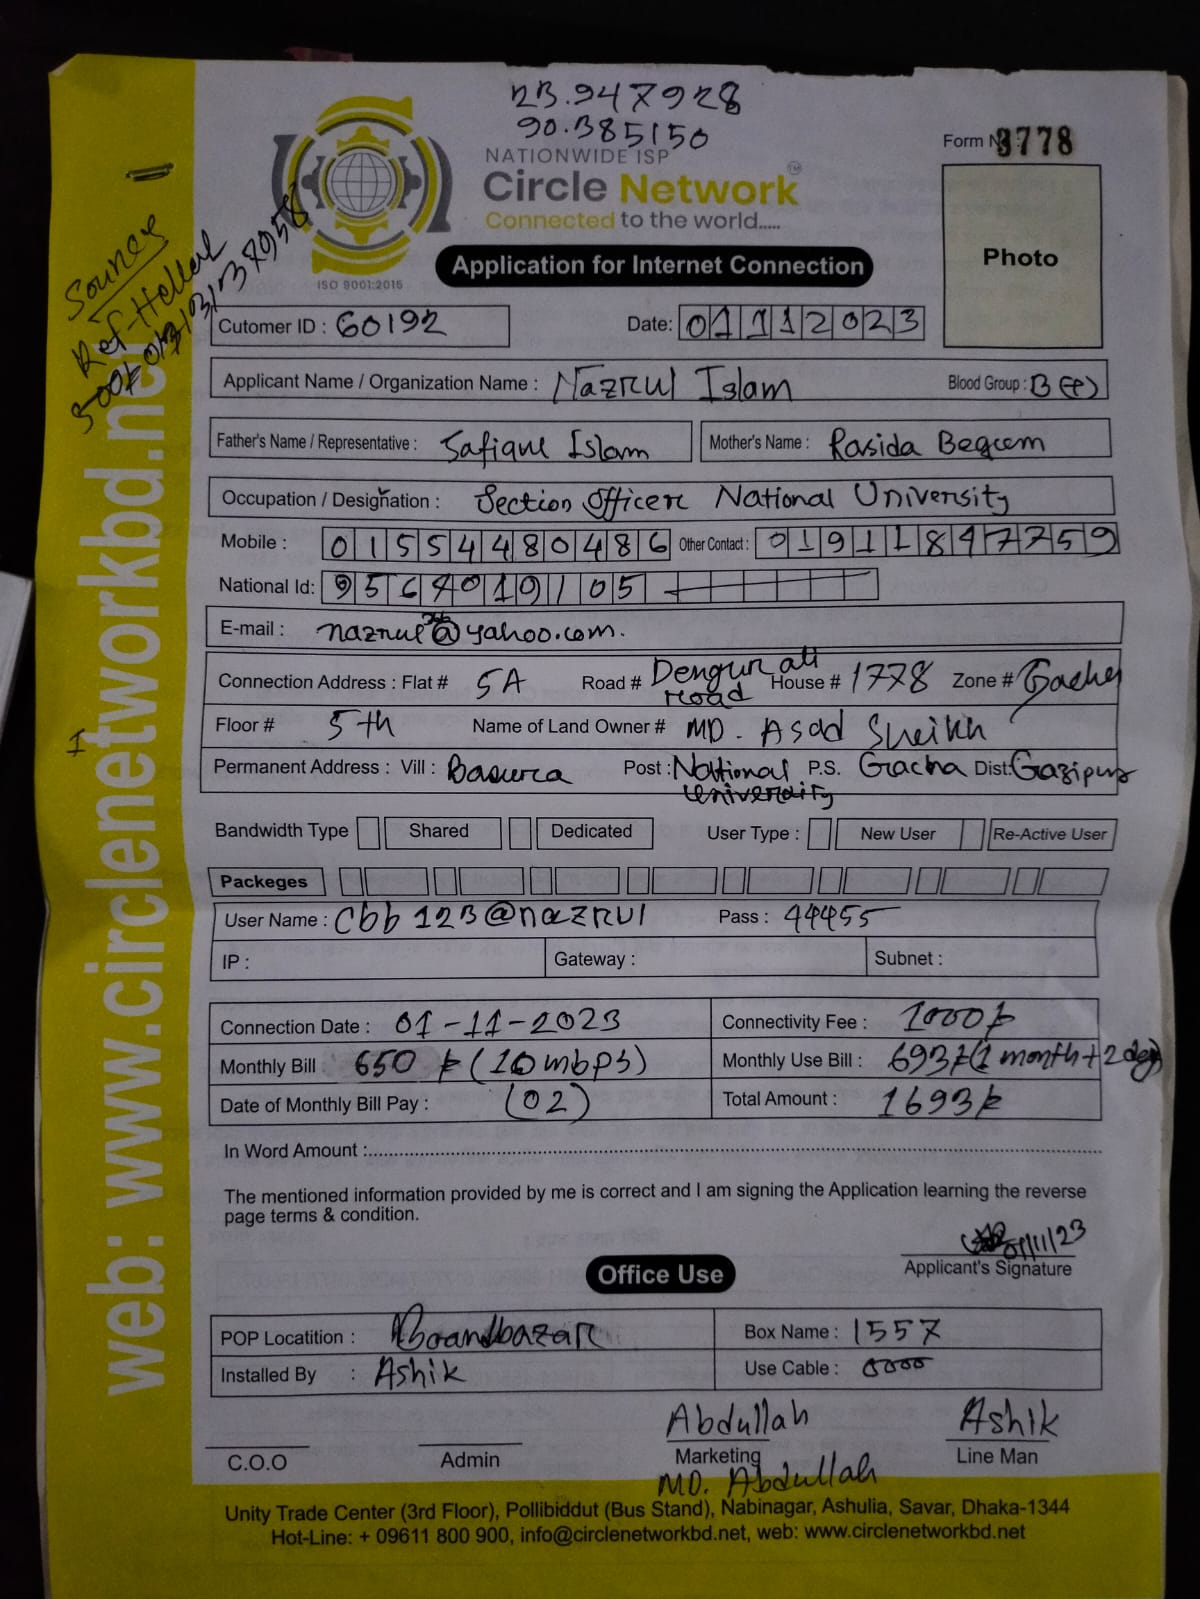 23.947928
90.385150
NATIONWIDE ISP
Circle Network™
Connected to the world.....
ISO 9001:2015
Form N 3778
Photo
Application for Internet Connection
Ref-Hellal
500৳
web: www.circlenetworkbd.net
Cutomer ID : 60192
Date: 01112023
Applicant Name / Organization Name : Nazrul Islam Blood Group : B(+)
Father's Name / Representative : Safique Islam Mother's Name : Rasida Begum
Occupation / Designation : Section Officer National University
Mobile : 01554480486 Other Contact : 01911897759
National Id: 9564019105
E-mail : nazrul366@yahoo.com.
Connection Address : Flat # 5A Road # Dengur ali road House # 1778 Zone # Gacha
Floor # 5th Name of Land Owner # MD. Asad Sheikh
Permanent Address : Vill : Post : National University P.S. Gacha Dist: Gazipur
Bandwidth Type Shared Dedicated User Type : New User Re-Active User
Packeges
User Name : Cbb123@nazrul Pass : 44455
IP : Gateway : Subnet :
Connection Date : 01-11-2023 Connectivity Fee : 1000৳
Monthly Bill 650৳ (10mbps) Monthly Use Bill : 693৳(1 month+2 day)
Date of Monthly Bill Pay : (02) Total Amount : 1693৳
In Word Amount :
The mentioned information provided by me is correct and I am signing the Application learning the reverse
page terms & condition.
01/11/23
Applicant's Signature
Office Use
POP Locatition : Boardbazar Box Name : 1557
Installed By : Ashik Use Cable : 0000
Abdullah Ashik
C.O.O Admin Marketing Line Man
MD. Abdullah
Unity Trade Center (3rd Floor), Pollibiddut (Bus Stand), Nabinagar, Ashulia, Savar, Dhaka-1344
Hot-Line: + 09611 800 900, info@circlenetworkbd.net, web: www.circlenetworkbd.net